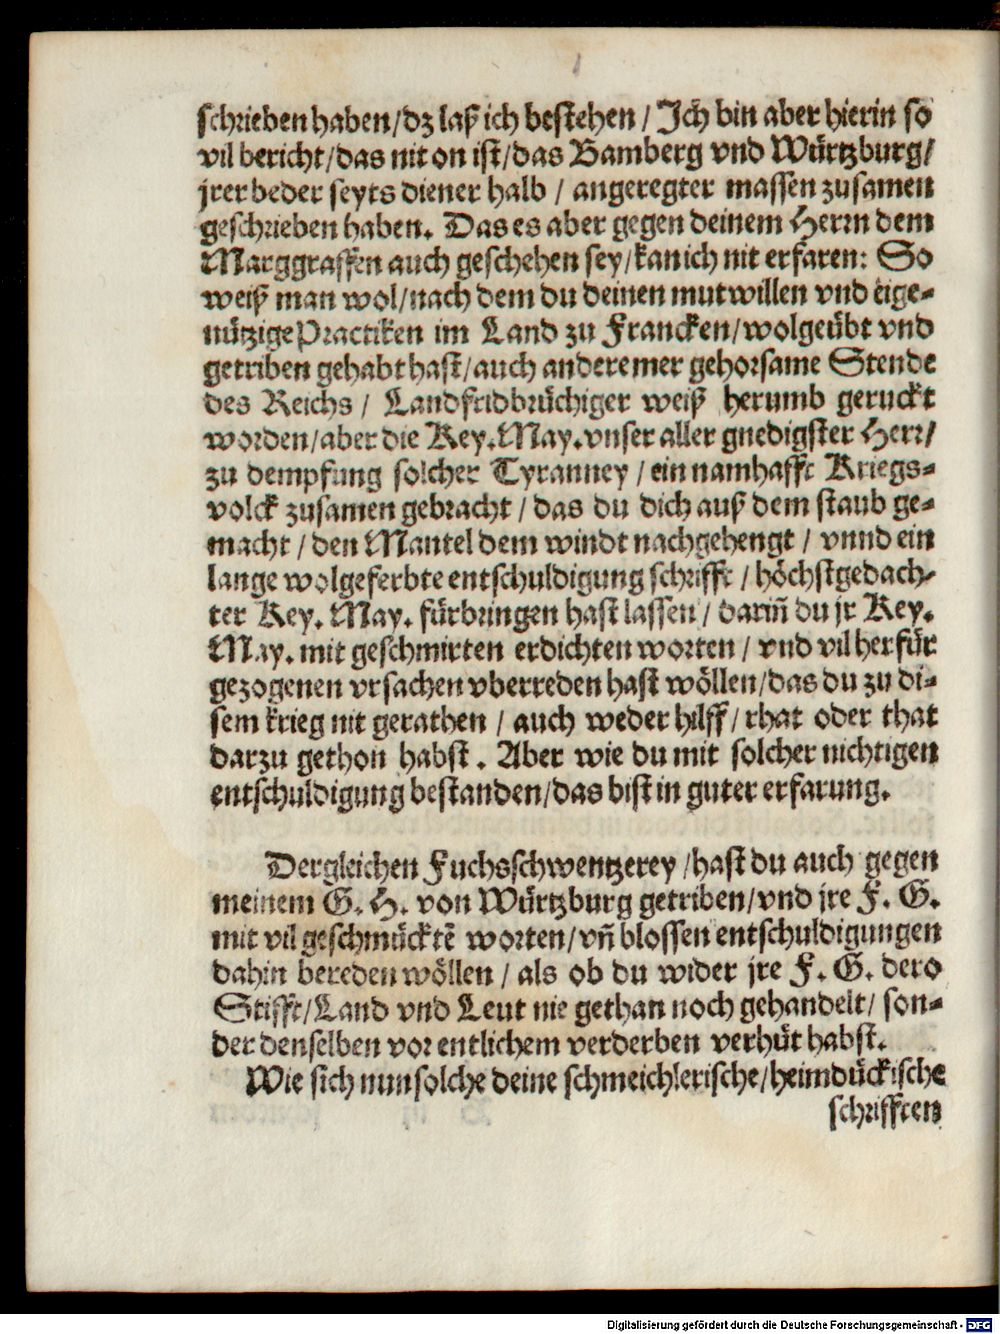 schrieben haben/dz laß ich bestehen / Ich bin aber hierin so
vil bericht/das nit on ist/das Bamberg vnd Würtzburg/
jrer beder seyts diener halb / angeregter massen zusamen
geschrieben haben. Das es aber gegen deinem Herrn dem
Marggraffen auch geschehen sey/kan ich nit erfaren: So
weiß man wol/nach dem du deinen mutwillen vnd eige-
nützige Practiken im Land zu Francken/wolgeübt vnd
getriben gehabt hast/auch andere mer gehorsame Stende
des Reichs / Landfridbrüchiger weiß herumb geruckt
worden/aber die Key. May. vnser aller gnedigster Herr/
zu dempfung solcher Tyranney / ein namhafft Kriegs-
volck zusamen gebracht / das du dich auß dem staub ge-
macht / den Mantel dem windt nachgehengt / vnnd ein
lange wolgeferbte entschuldigung schrifft / höchstgedach-
ter Key. May. fürbringen hast lassen / dariñ du jr Key.
May. mit geschmirten erdichten worten / vnd vil herfür
gezogenen vrsachen vberreden hast wöllen/das du zu di-
sem krieg nit gerathen / auch weder hilff / rhat oder that
darzu gethon habst. Aber wie du mit solcher nichtigen
entschuldigung bestanden/das bist in guter erfarung.
Dergleichen Fuchsschwentzerey /hast du auch gegen
meinem G. H. von Würtzburg getriben/vnd jre F. G.
mit vil geschmücktẽ worten/vñ blossen entschuldigungen
dahin bereden wöllen / als ob du wider jre F. G. dero
Stifft/Land vnd Leut nie gethan noch gehandelt/ son-
der denselben vor entlichem verderben verhüt habst.
Wie sich nun solche deine schmeichlerische/heimdückische
schrifften
Digitalisierung gefördert durch die Deutsche Forschungsgemeinschaft - DFG